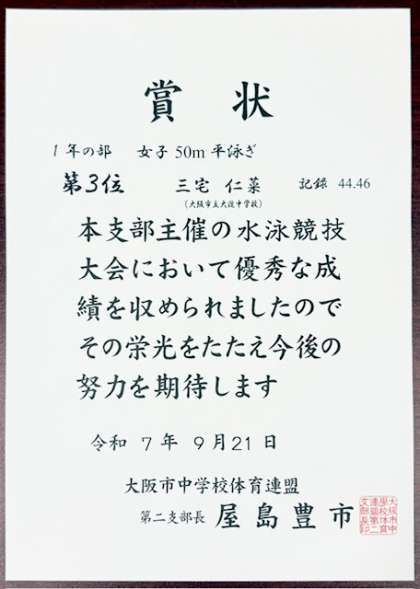 賞状
1年の部 女子 50m 平泳ぎ
第3位 三宅 仁菜 記録 44.46
(大阪市立大淀中学校)
本支部主催の水泳競技
大会において優秀な成
績を収められましたので
その栄光をたたえ今後の
努力を期待します
令和 7年 9月21日
大阪市中学校体育連盟
第二支部長 屋島豊市